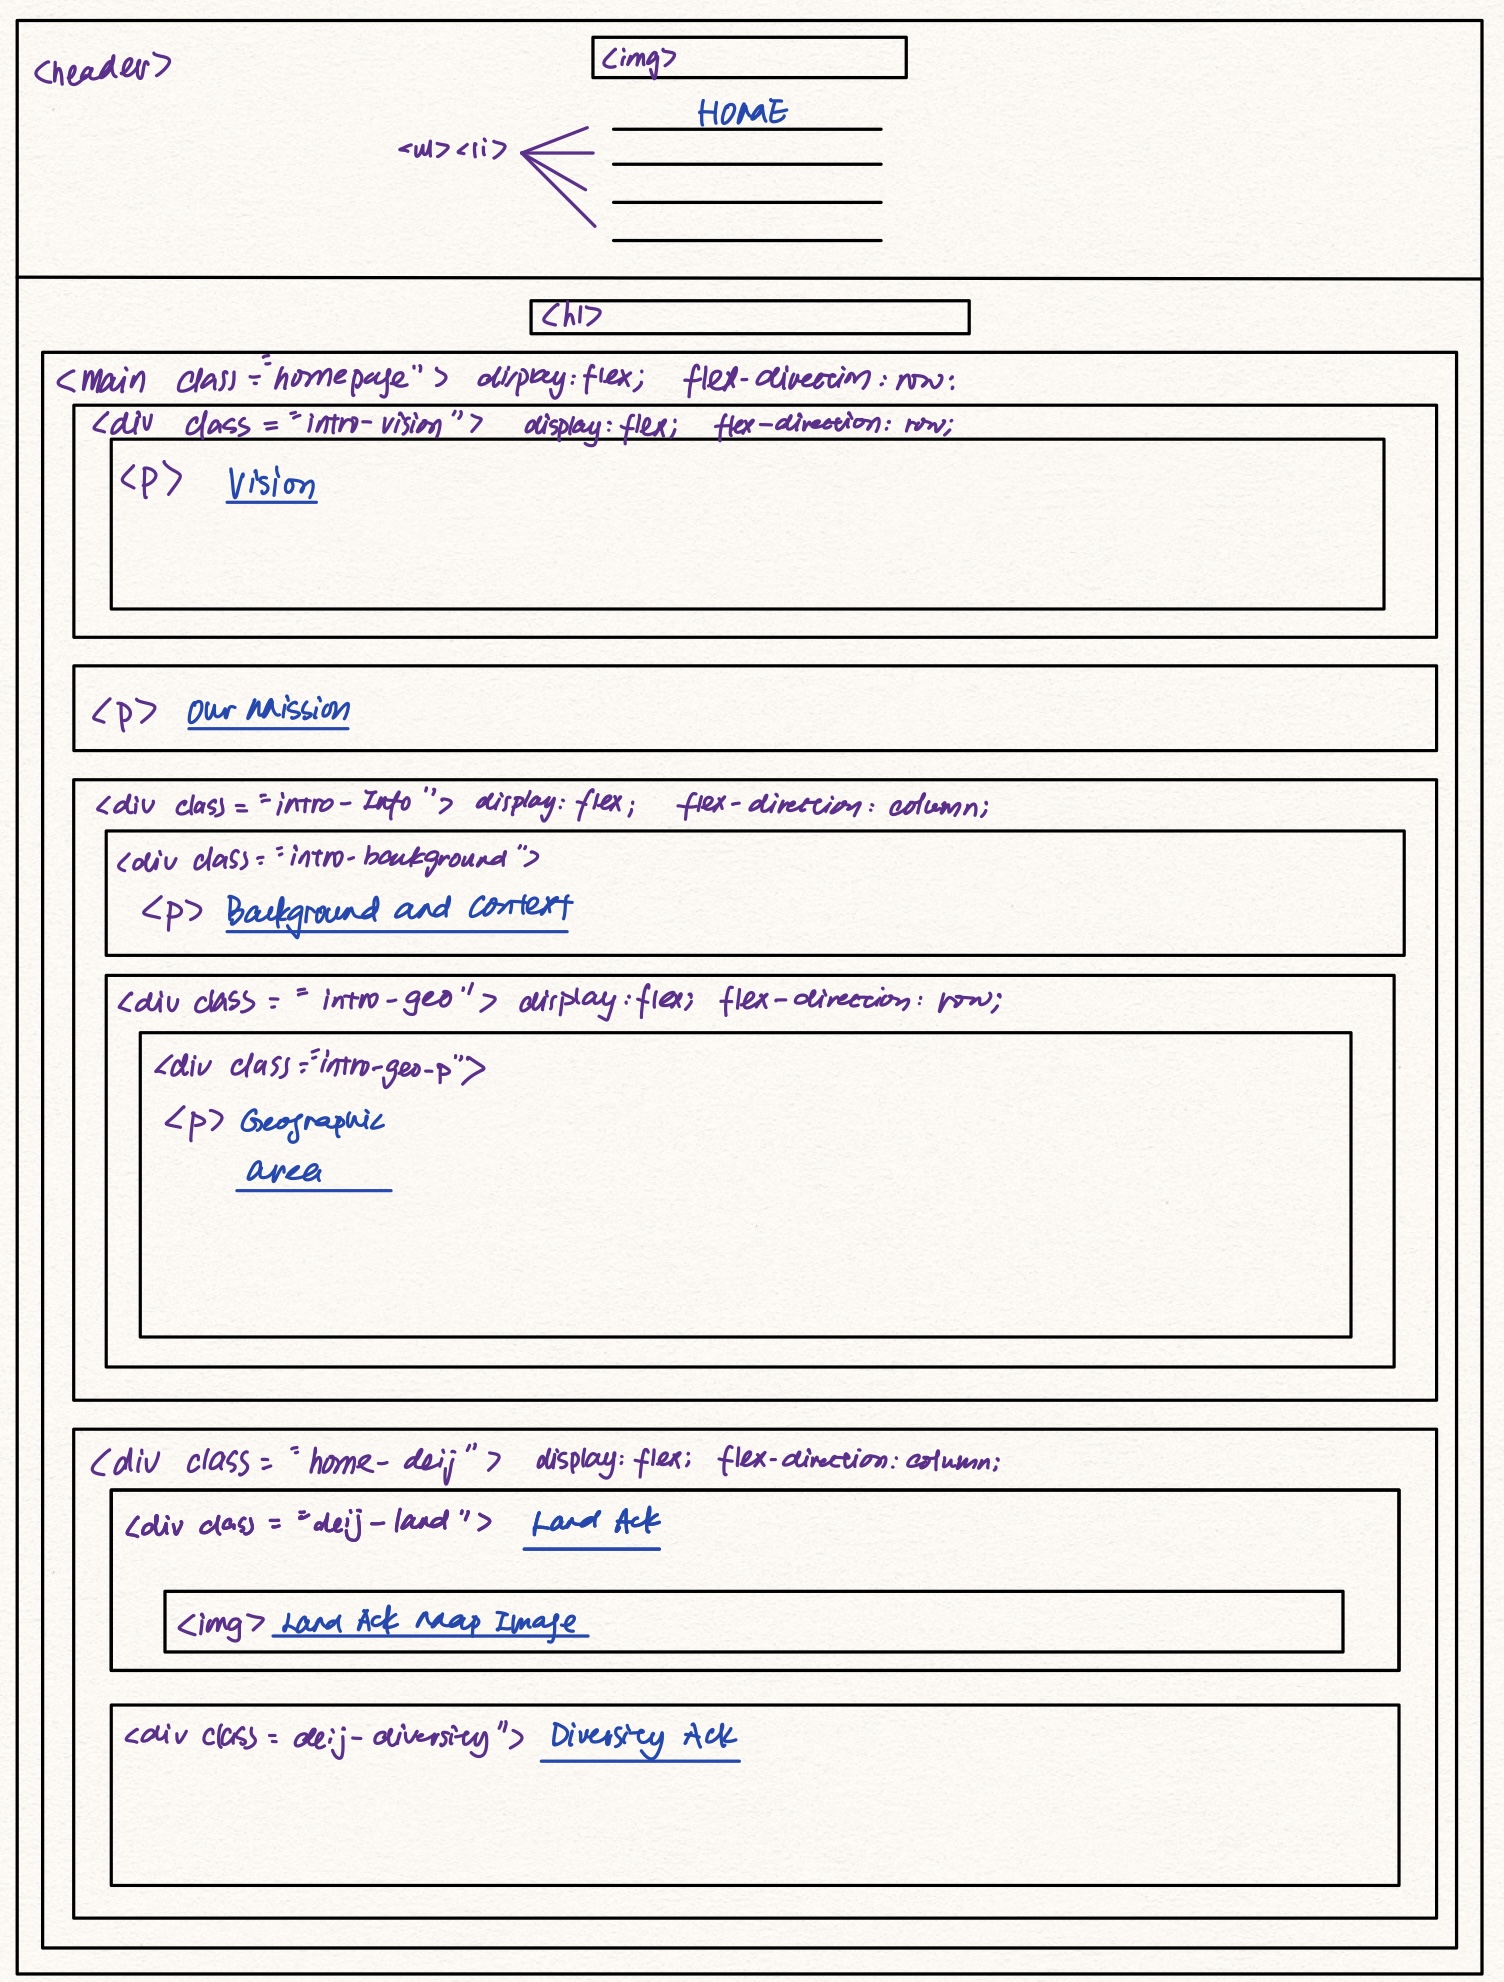 <header>
<img>
HOME
<ul> <li>
<h1>
<main class="homepage"> display: flex; flex-direction: row:
<div class="intro-vision"> display: flex; flex-direction: row;
<p> Vision
<p> Our Mission
<div class="intro-Info"> display: flex; flex-direction: column;
<div class="intro-background">
<p> Background and Context
<div class="intro-geo"> display: flex; flex-direction: row;
<div class="intro-geo-p">
<p> Geographic
area
<div class="home-deij"> display: flex; flex-direction: column;
<div class="deij-land"> Land Ack
<img> Land Ack Map Image
<div class=deij-diversity"> Diversity Ack